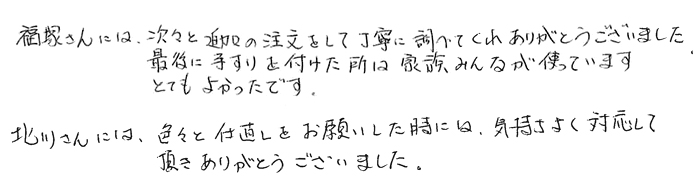 福塚さんには、次々と追加の注文をして丁寧に調べてくれありがとうございました。
最後に手すりを付けた所は家族みんなが使っています
とてもよかったです。
北川さんには、色々と仕直しをお願いした時には、気持ちよく対応して
頂きありがとうございました。